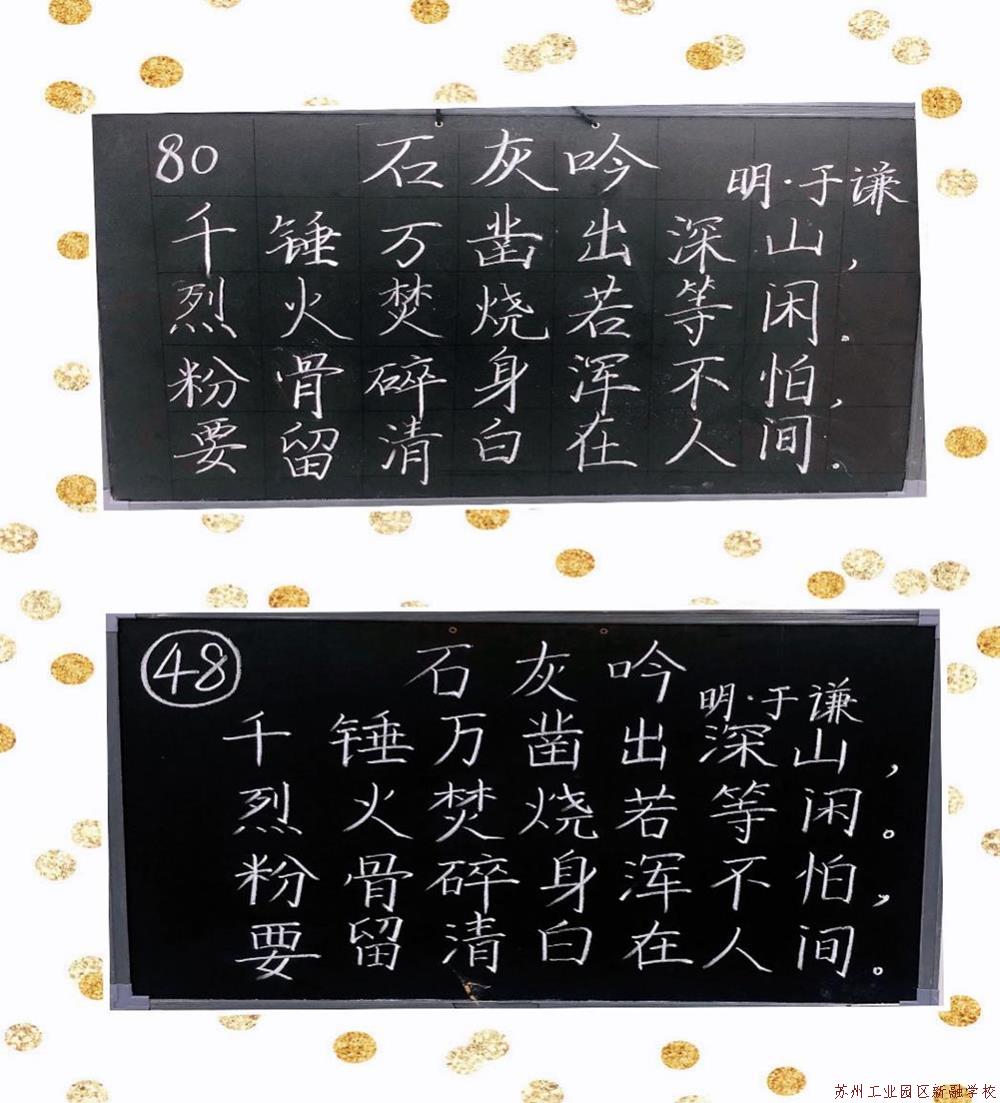 80 石灰吟
明·于谦
千锤万凿出深山，
烈火焚烧若等闲。
粉骨碎身浑不怕，
要留清白在人间。
48 石灰吟
明·于谦
千锤万凿出深山，
烈火焚烧若等闲。
粉骨碎身浑不怕，
要留清白在人间。
苏州工业园区新融学校